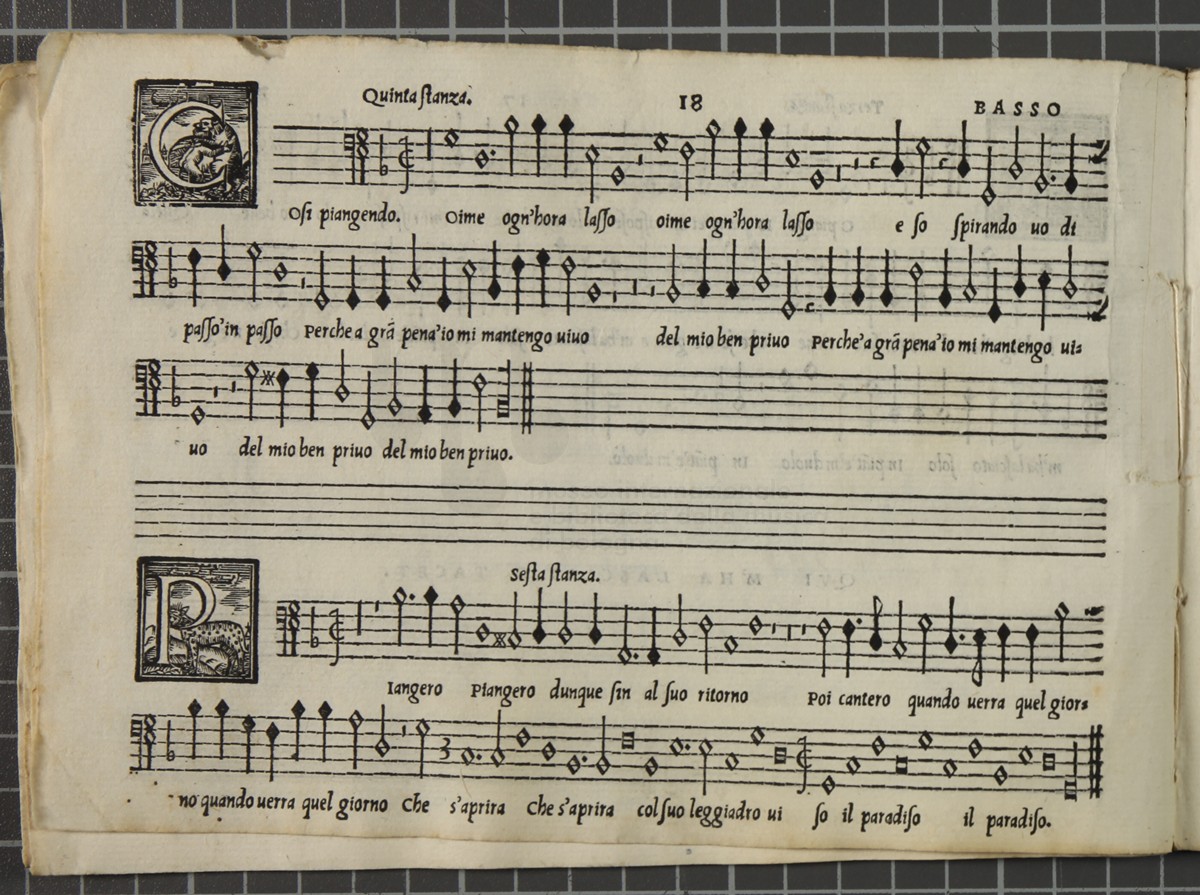 Quinta ſtanza. 18 BASSO
COſi piangendo. Oime ogn'hora laſſo oime ogn'hora laſſo e ſo ſpirando uo di
paſſo'in paſſo Perche a grã pena'io mi mantengo uiuo del mio ben priuo Perche'a grã pena'io mi mantengo ui=
uo del mio ben priuo del mio ben priuo.
Seſta ſtanza.
PIangero Piangero dunque ſin al ſuo ritorno Poi cantero quando uerra quel gior=
no quando uerra quel giorno Che s'aprira Che s'aprira col ſuo leggiadro ui ſo il paradiſo il paradiſo.